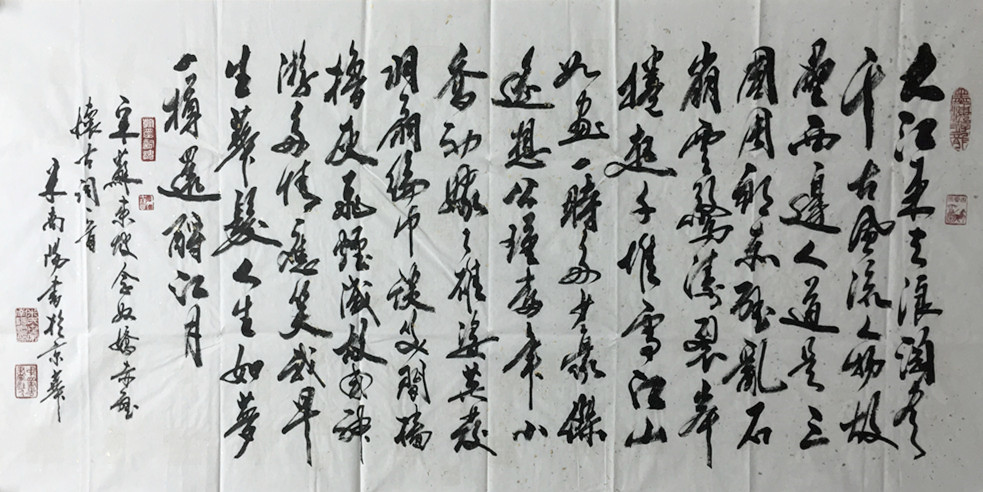 大江東去浪淘盡
千古風流人物故
壘西邊人道是三
國周郎赤壁亂石
崩雲驚濤裂岸
捲起千堆雪江山
如畫一時多少豪傑
遙想公瑾當年小
喬初嫁了雄姿英發
羽扇綸巾談笑間檣
櫓灰飛煙滅故國神
游多情應笑我早
生華髮人生如夢
一樽還酹江月
宋蘇東坡念奴嬌赤壁
懷古詞一首
米南陽書於京華